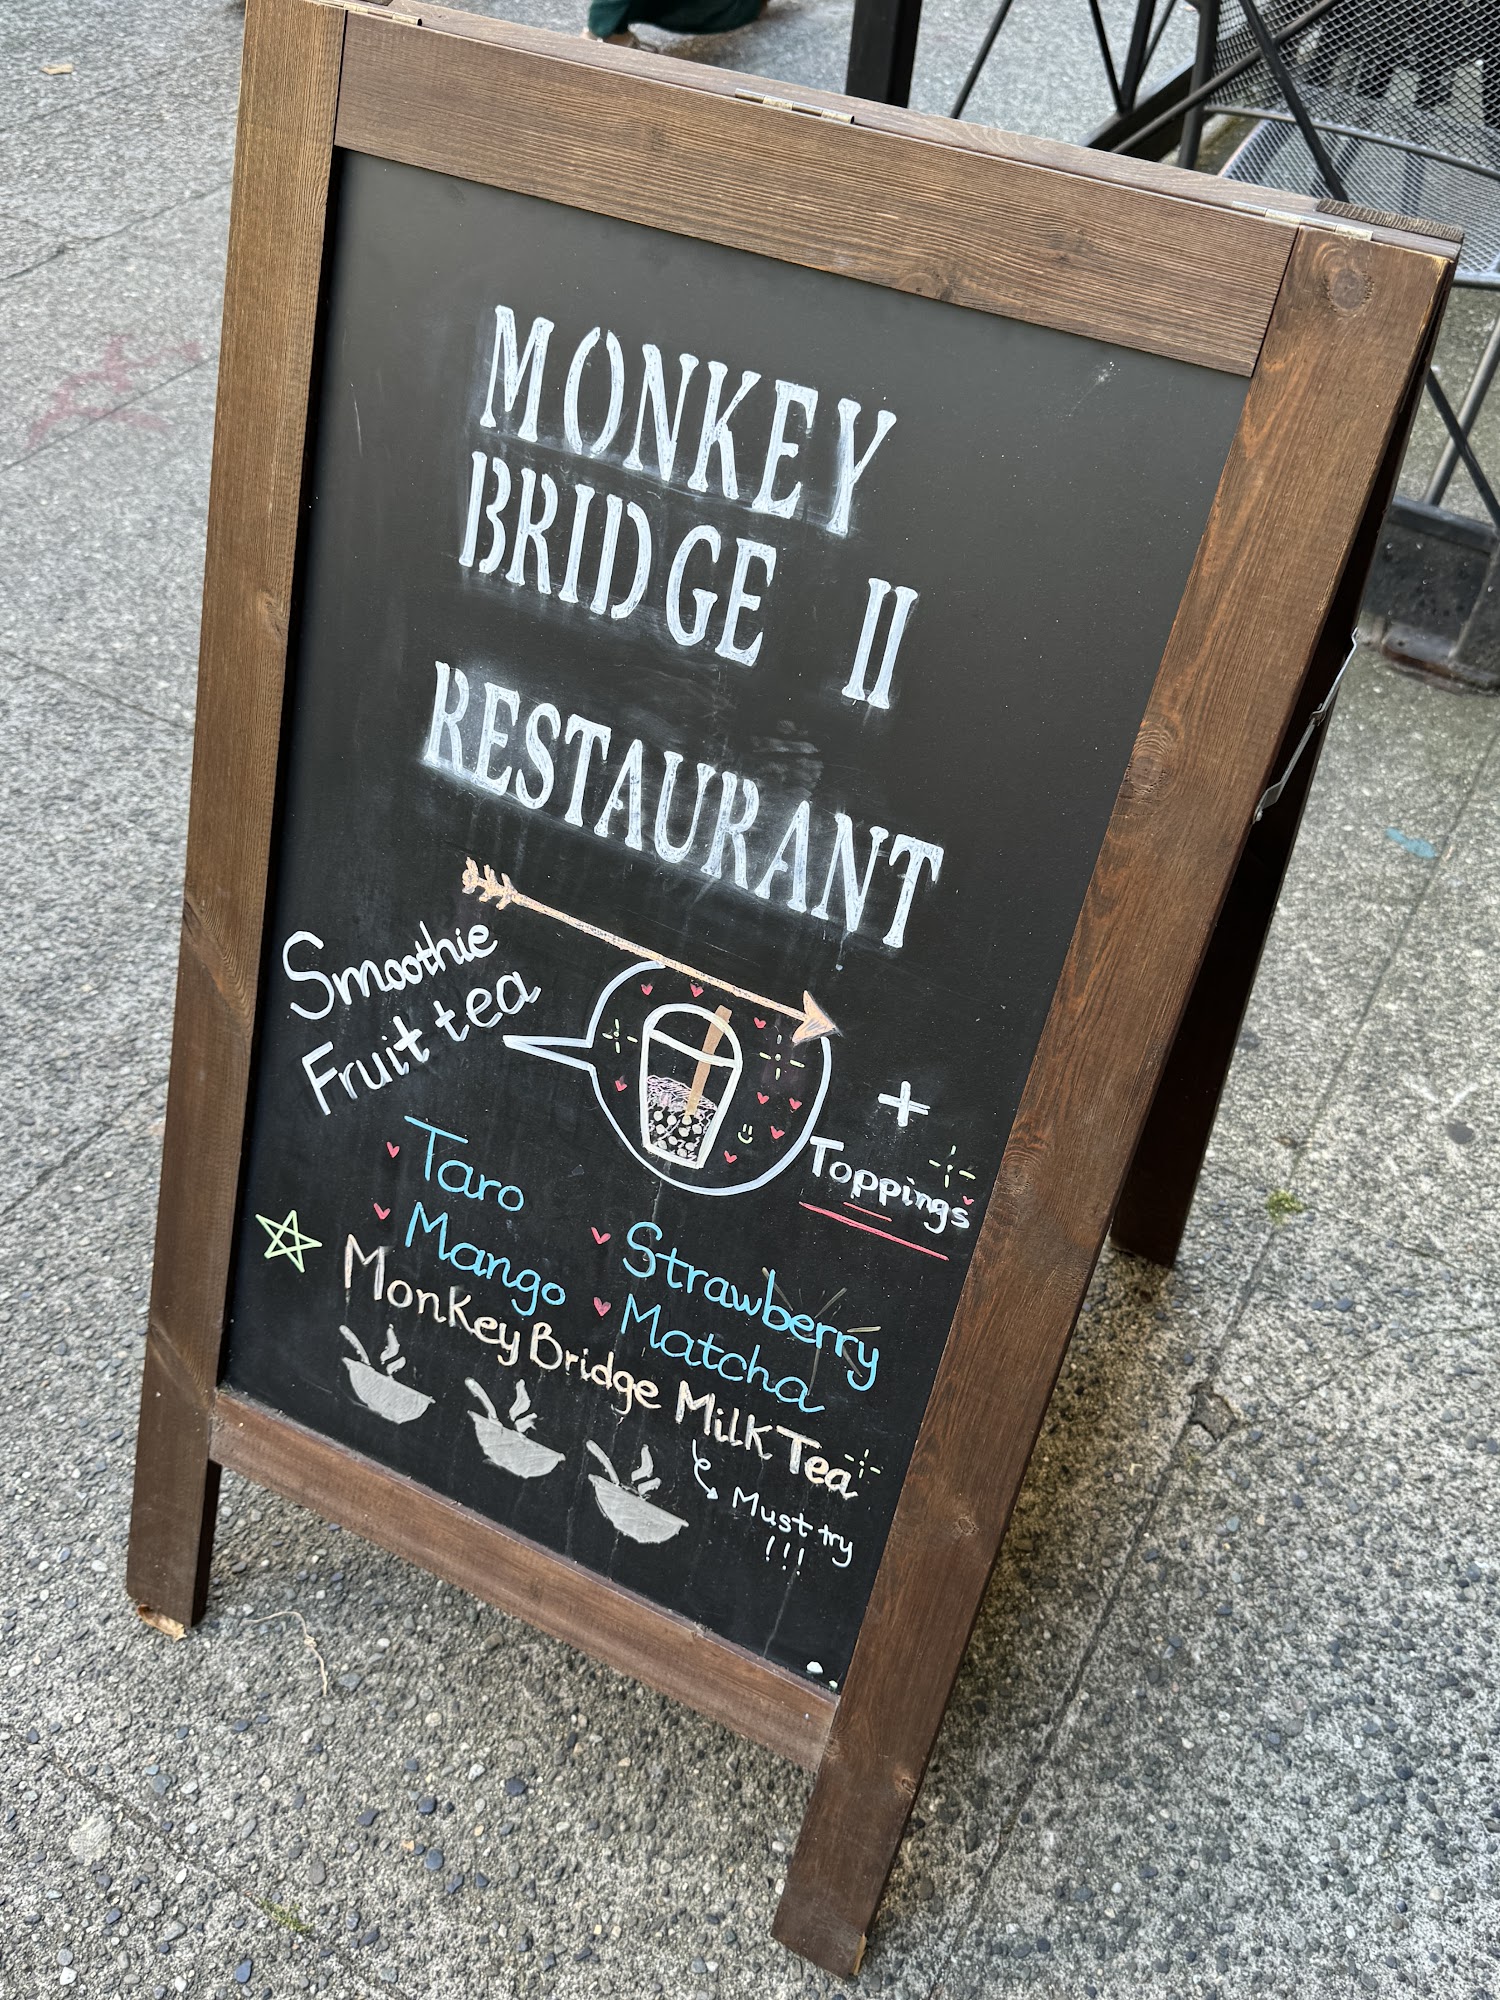 MONKEY
BRIDGE II
RESTAURANT
Smoothie
Fruit tea
+
Toppings
Taro
Mango
Strawberry
Matcha
Monkey Bridge Milk Tea
Must try
!!!